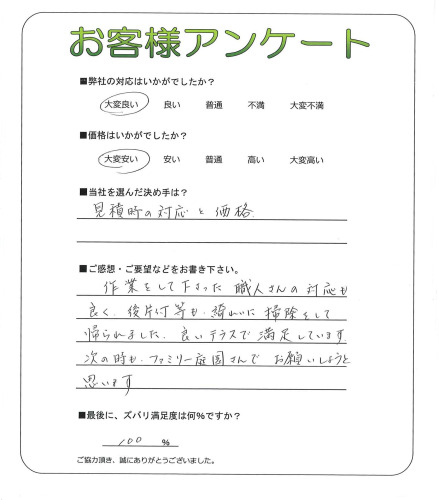 お客様アンケート
■弊社の対応はいかがでしたか？
大変良い 良い 普通 不満 大変不満
■価格はいかがでしたか？
大変安い 安い 普通 高い 大変高い
■当社を選んだ決め手は？
見積時の対応と価格
■ご感想・ご要望などをお書き下さい。
作業をして下さった職人さんの対応も
良く、後片付等も、綺れいに掃除をして
帰られました。良いテラスで満足しています。
次の時も、ファミリー庭園さんでお願いしようと
思います
■最後に、ズバリ満足度は何％ですか？
100 ％
ご協力頂き、誠にありがとうございました。